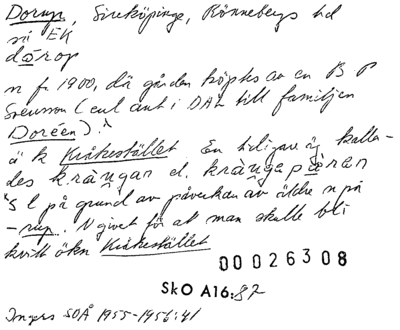 Dorup, Sireköpinge, Rönnebergs hd
vi EK
dårop
n fr 1900, då gården köpts av en B P
Svensson (enl ant i DAL till familjen
Doréen).
ä k Kråkestället En tidigare äg kalla-
des krångar el. krångapären
S l på grund av påverkan av äldre n på
-rup. N givet för att man skulle bli
kvitt ökn Kråkestället
00026308
SkO A16:87
Ingers SOÅ 1955-1956:41